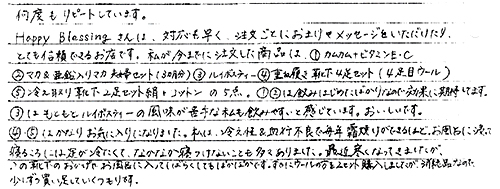 何度もリピートしています。
Happy Blessingさんは、対応も早く、注文ごとにおまけやメッセージをいただいたり、
とても信頼できるお店です。私が今までに注文した商品は、①カムカム+ビタミンE・C
②マカ&亜鉛入りマカ夫婦セット(30日分)③ルイボスティー④重ね履き靴下4足セット(4足目ウール)
⑤冷え取り靴下2足セット絹+コットンの5点。①②は飲みはじめたばかりなので効果に期待してます。
③はもともとルイボスティーの風味が苦手な私も飲みやすいと感じています。おいしいです。
④⑤はかなりお気に入りになりました。私は、冷え性&血行不良で毎年霜焼けができるほど、お風呂に浸って
寝るころには足が冷たくて、なかなか寝つけないことも多々ありました。最近寒くなってきましたが、
この靴下のおかげでお風呂に入ってしばらくしてもぽかぽかです。すでにウールの方を2セット購入しましたが、消耗品なので
少しずつ買い足していくつもりです。